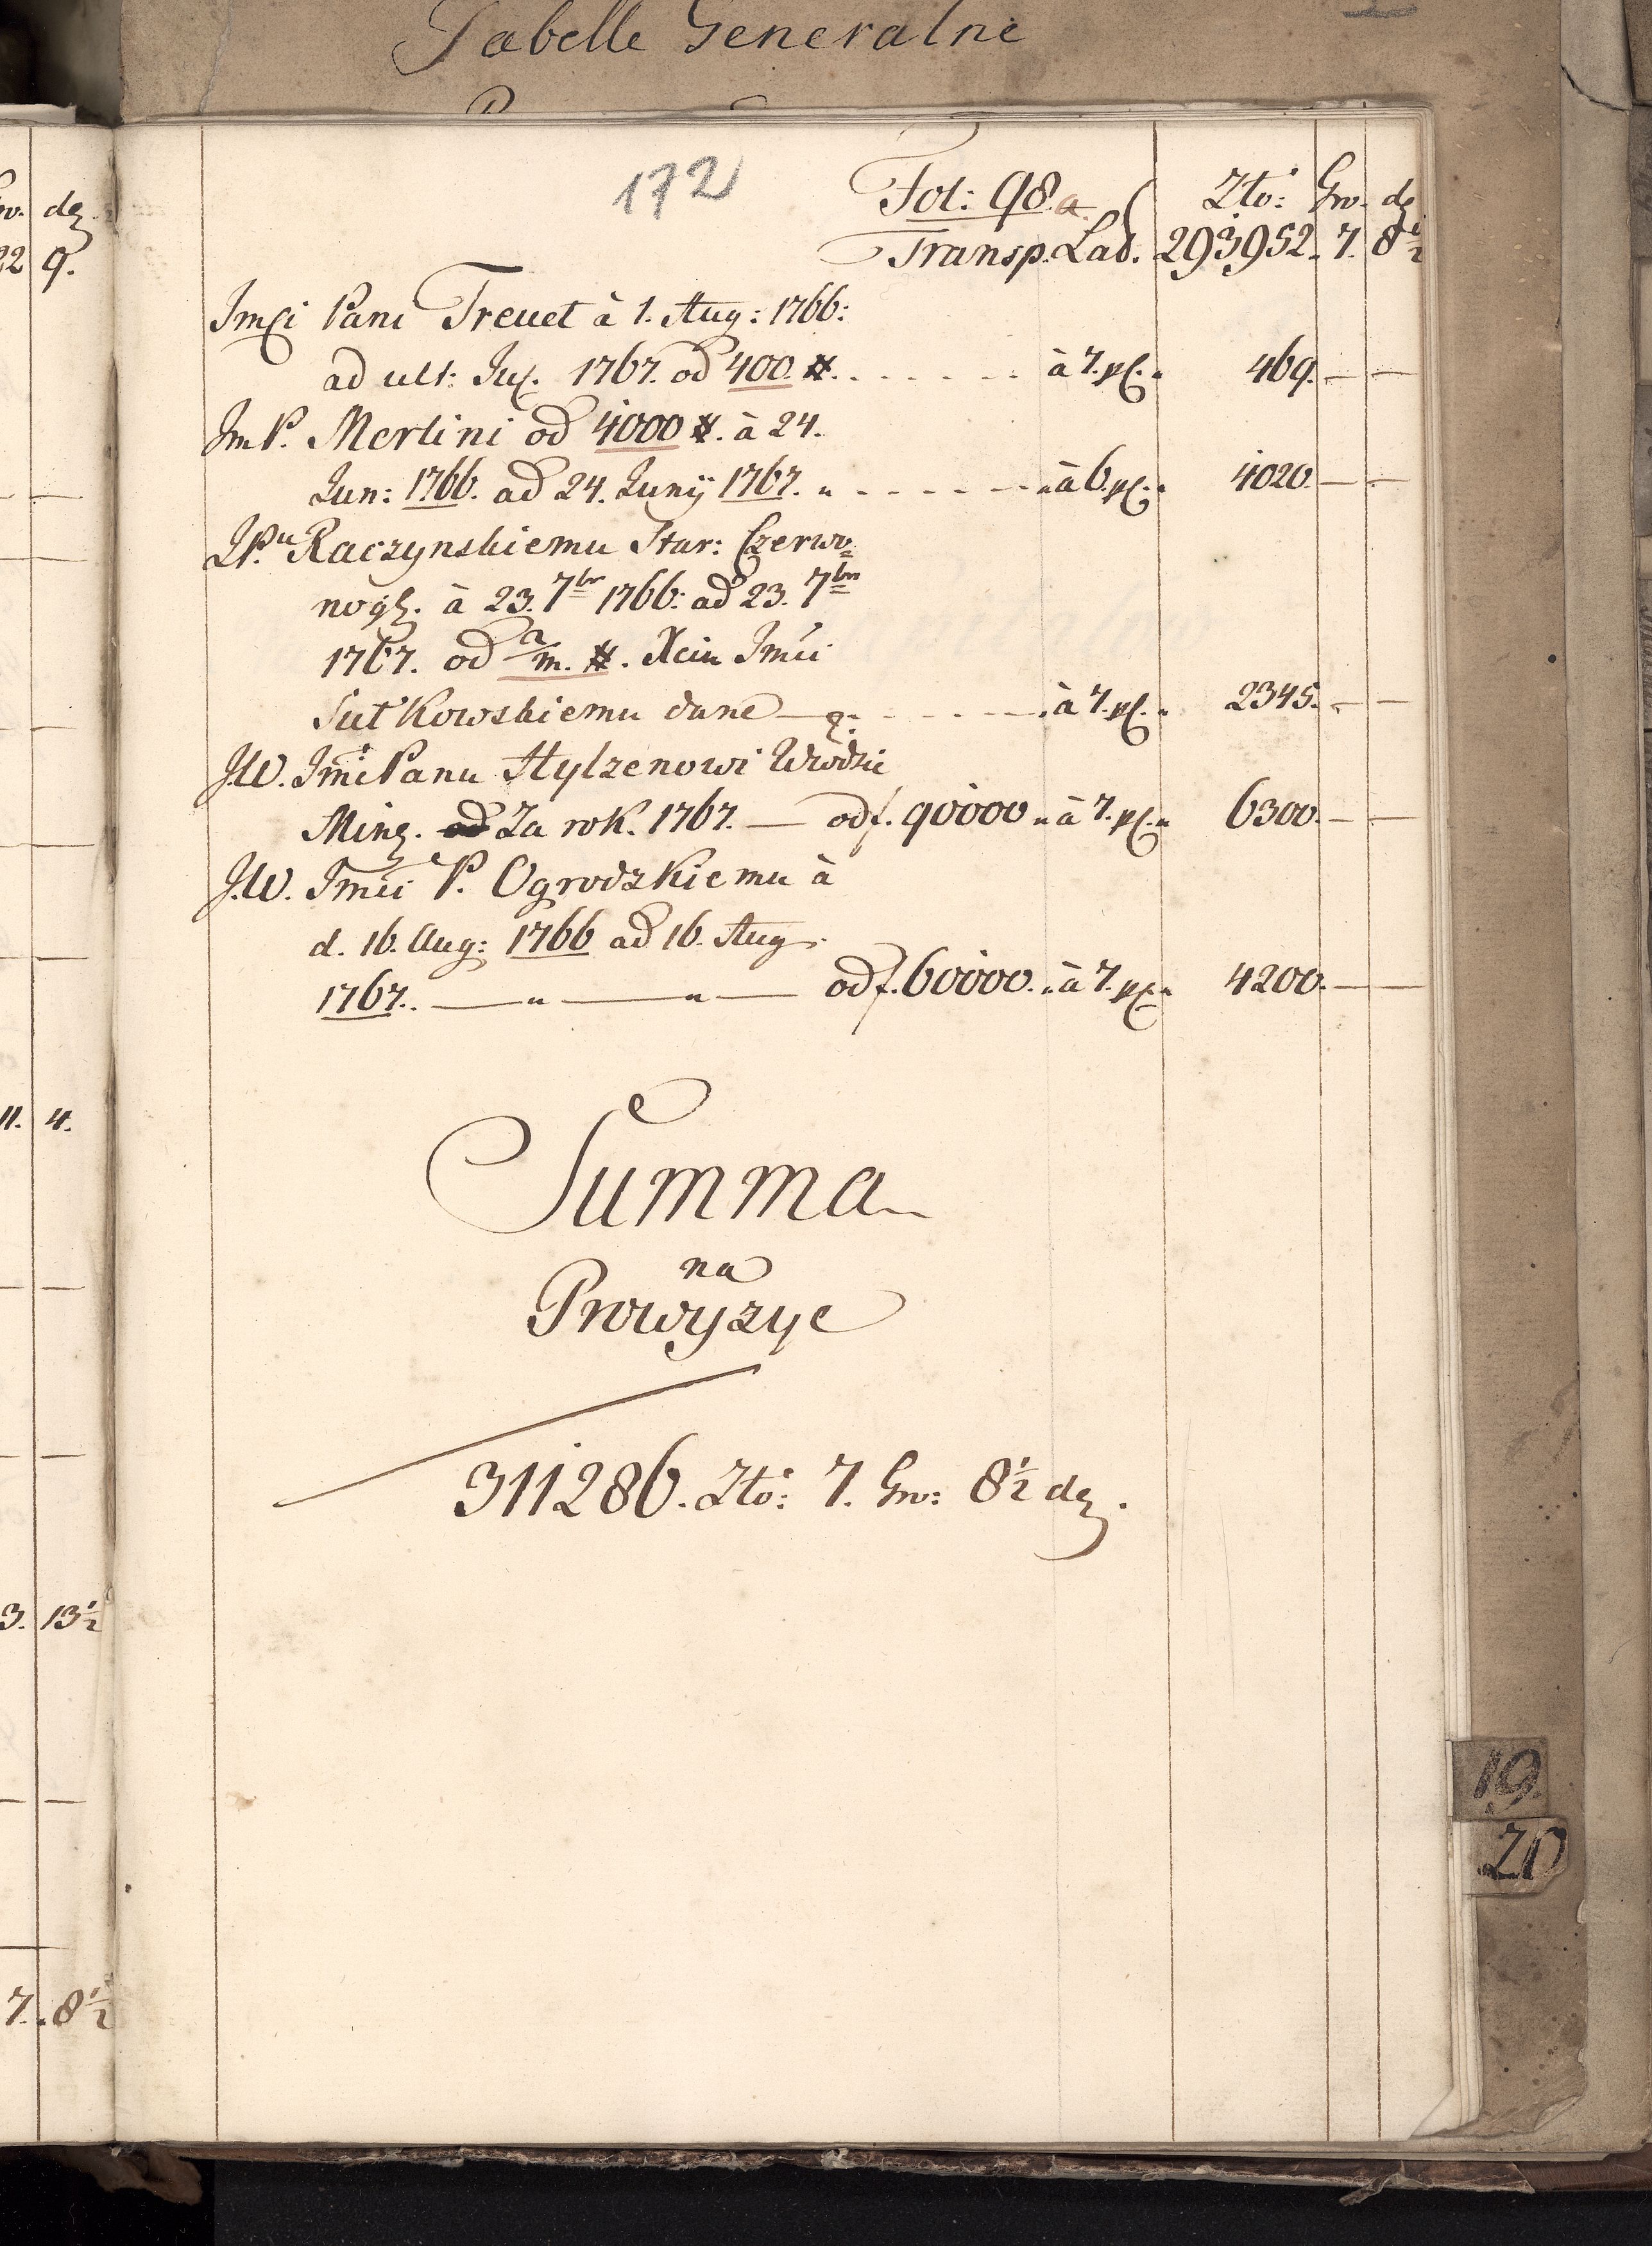 Tabelle Generalne
172
Fol: 98.a.
Zło: Gro. de
Transp. Lad. 293952. 7. 8½
Jmći Pani Treuet à 1. Aug: 1766:
ad ult: Jul. 1767. od 400. #. à 7. pC. 469. — —
Jm P. Merlini od 4000 #. à 24.
Jun: 1766. ad 24. Junÿ 1767. à 6. pC. 4020. — —
JPu Raczynskiemu Star: Czerwo=
nog. à 23. 7br 1766: ad 23. 7bris
1767. od a/m. #. Xciu Jmći
Sułkowskiemu dane à 7. pC. 2345. — —
J.W. Jmć Panu Hylzenowi Wwodzie
Minz. od Za rok. 1767. — od f. 90000 à 7. pC. 6300. — —
J.W. Jmći P. Ogrodzkiemu à
d. 16. Aug: 1766 ad 16. Aug.
1767. — " — " — od f. 60000. à 7. pC. 4200. — —
Summa
na
Prowyzye
311286. Zło: 7. Gro: 8½ de.
19.
20
22 9.
11. 4.
3. 13½
7. 8½